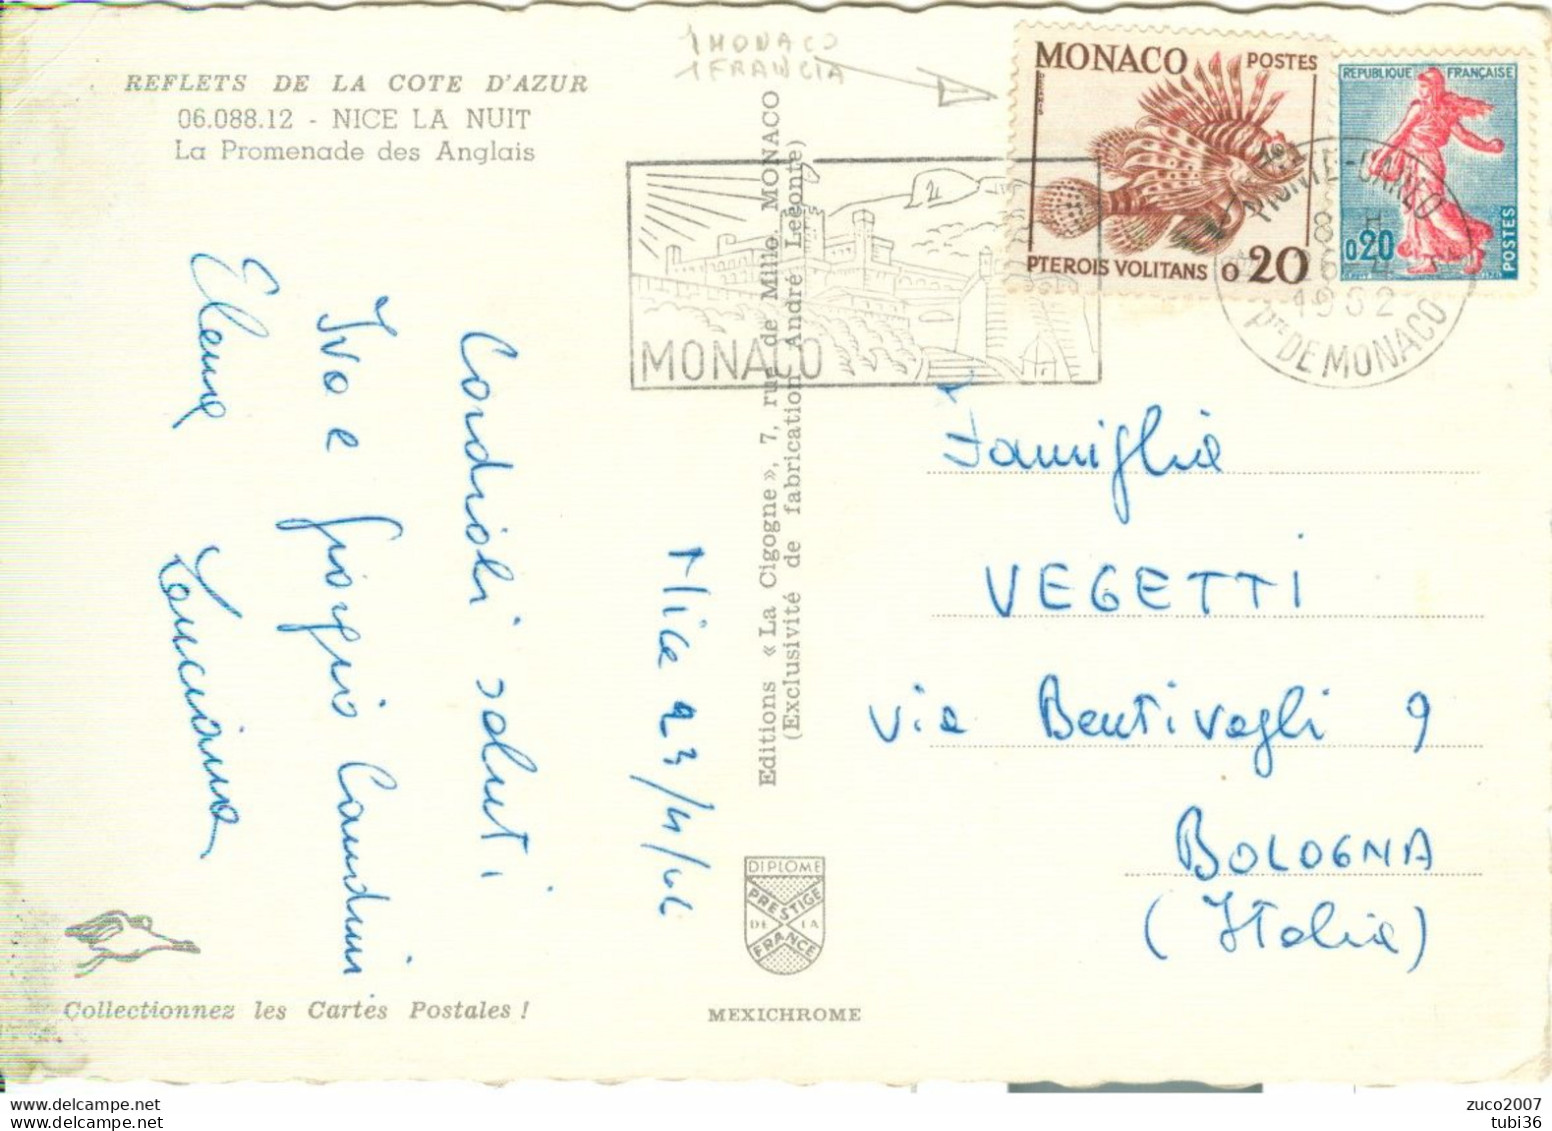 1 MONACO
1 FRANCIA
REFLETS DE LA COTE D'AZUR
06.088.12 - NICE LA NUIT
La Promenade des Anglais
MONACO POSTES
PTEROIS VOLITANS 0 20
REPUBLIQUE FRANÇAISE
0,20
POSTES
MONTE-CARLO
1962
Pte DE MONACO
MONACO
Editions « La Cigogne », 7, rue de Millo, MONACO
(Exclusivité de fabrication André Leconte)
Nice 23/4/
Cordiali saluti
Ivo e Giorgio
Elena Luciana
Famiglia
VEGETTI
via Bentivogli 9
BOLOGNA
(Italia)
DIPLOME
PRESTIGE
DE LA
FRANCE
Collectionnez les Cartes Postales !
MEXICHROME
zuco2007
zuco2007
tubi36
tubi36